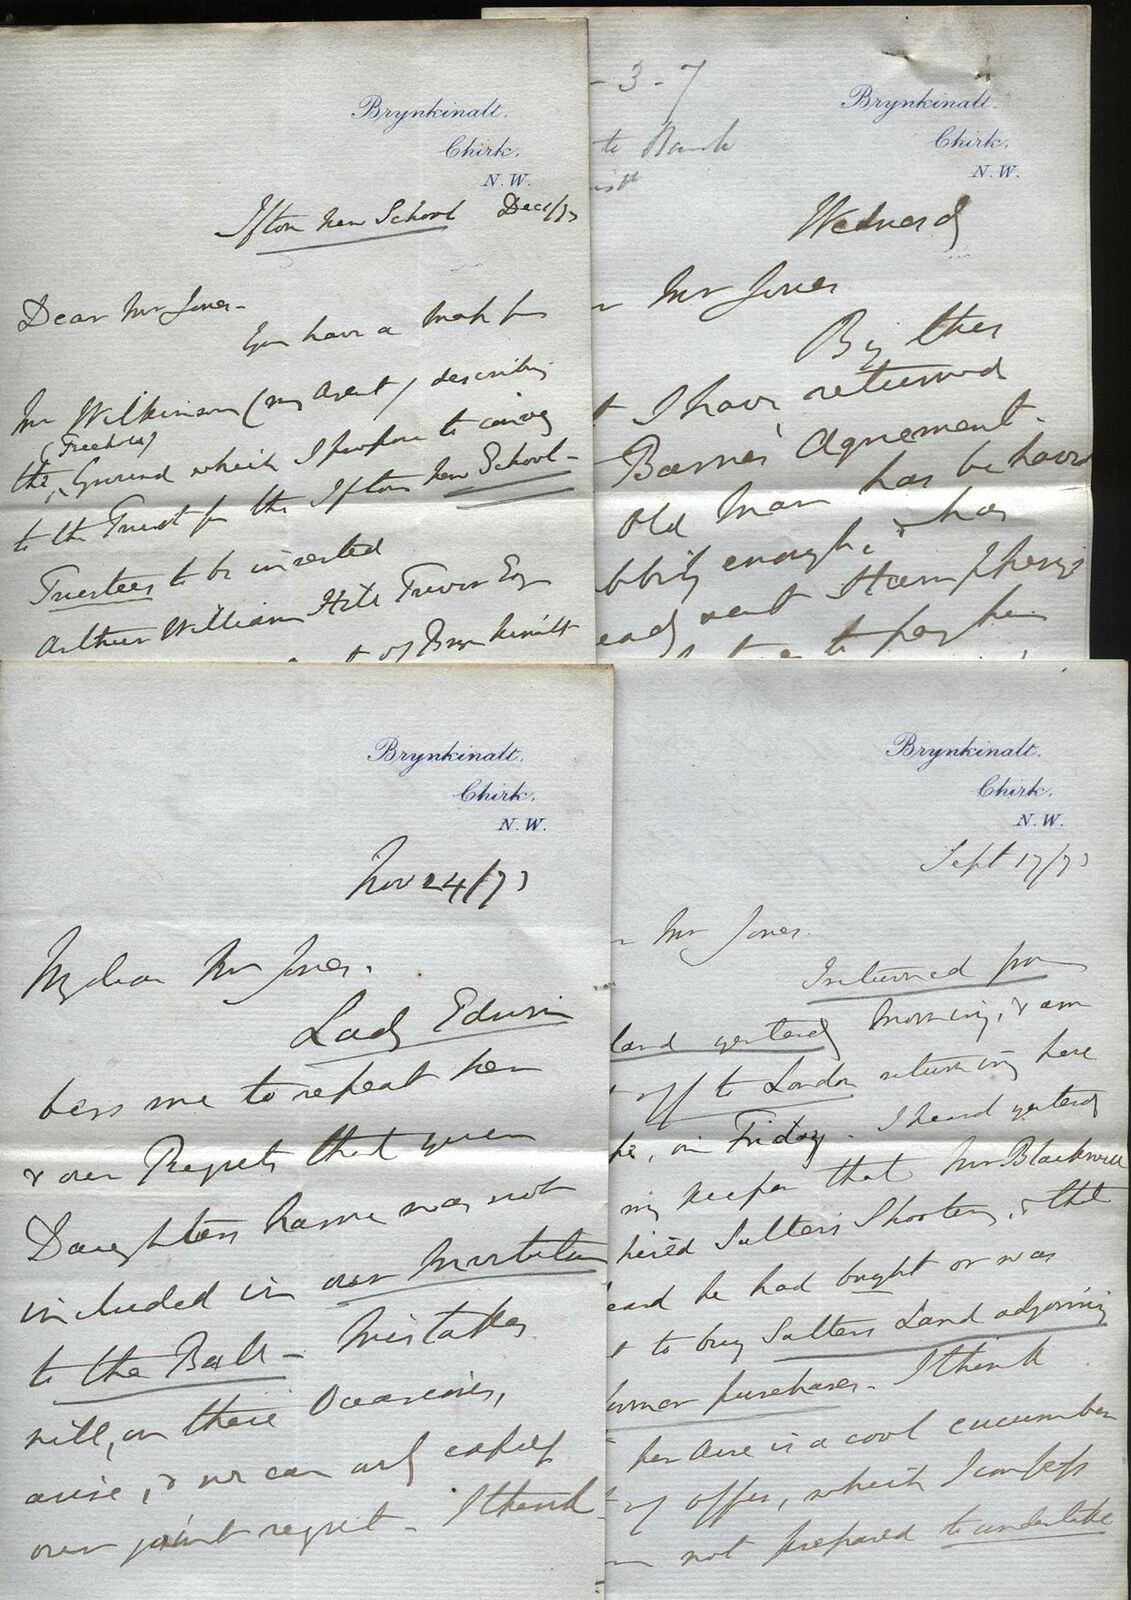 Brynkinalt.
Chirk.
N.W.
Ifton New School Dec 1/73
Dear Mr Jones-
You have a
Mr Wilkinson (my Agent) describing
(Freehold)
the Ground which I propose to convey
to the Trust for the Ifton New School-
Trustees to be inserted
Arthur William Hill Trevor Esq
of Brynkinalt
- 3 - 7
to Bank
Brynkinalt.
Chirk.
N.W.
Wednesd
Mr Jones
By this
I have returned
Agreement.
Old Man has behaved
enough, has
sent Humphreys
to pay him
Brynkinalt.
Chirk.
N.W.
Nov 24/73
My dear Mr Jones.
Lady Edwin
begs me to repeat her
& our Regrets that your
Daughters name was not
included in our Invitation
to the Ball - Mistakes
will, on these Occasions,
arise, & we can only express
our joint regret. I think
Brynkinalt.
Chirk.
N.W.
Sept 17/73
Mr Jones.
I returned from
land yesterday Morning, & am
off to London returning here
on Friday. I heard yesterday
my keeper that Mr Blackwell
hired Salters Shooting, & that
he had bought or was
to buy Salters Land adjoining
purchases. I think
is a cool cucumber
offer, which I confess
not prepared to undertake